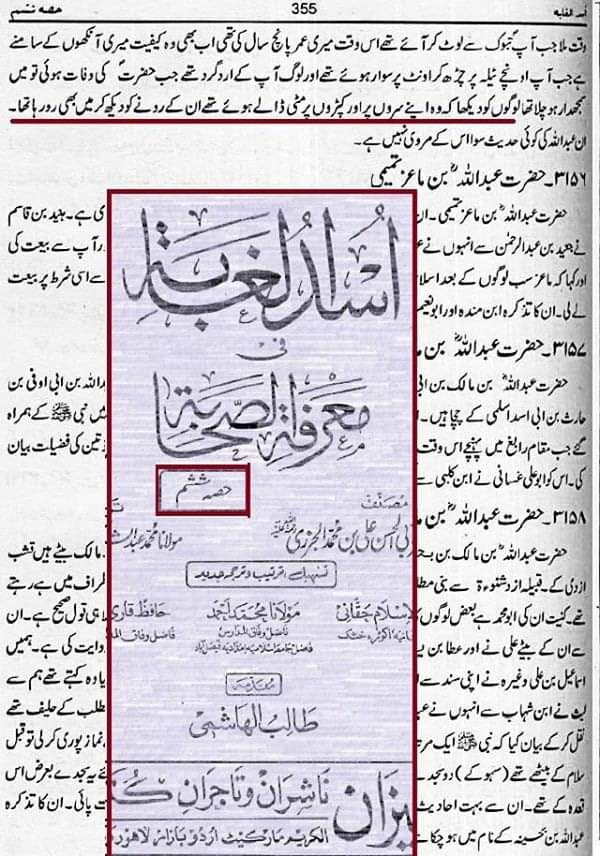 اسد الغابہ
355
حصہ ششم
وقت ملا جب آپ تبوک سے لوٹ کر آئے تھے اس وقت میری عمر پانچ سال کی تھی اب بھی وہ کیفیت میری آنکھوں کے سامنے
ہے جب آپ اونچے ٹیلہ پر چڑھ کر اونٹ پر سوار ہوئے تھے اور لوگ آپ کے ارد گرد تھے جب حضرت کی وفات ہوئی تو میں
سمجھدار ہو چلا تھا لوگوں کو دیکھا کہ وہ اپنے سروں پر اور کپڑوں پر مٹی ڈالے ہوئے تھے ان کے رونے کو دیکھ کر میں بھی رو رہا تھا۔
ان عبداللہ کی کوئی حدیث سوا اس کے مروی نہیں ہے۔
۳۱۵۶۔ حضرت عبداللہؓ بن ماعز تمیمی
حضرت عبداللہؓ بن ماعز تمیمی۔ ان
ی ہے۔ جنید بن قاسم
نے جعید بن عبدالرحمٰن سے انہوں نے
ور آپ سے بیعت کی
اور کہا کہ ماعز سب لوگوں کے بعد اسلا
سے اسی شرط پر بیعت
لے لی۔ ان کا تذکرہ ابن مندہ اور ابونعیم
۳۱۵۷۔ حضرت عبداللہؓ بن ما
حضرت عبداللہؓ بن مالک بن
داللہ بن ابی اوفی بن
حارث بن ابی اسد اسلمی کے چچا ہیں۔
میں نبی ﷺ کے ہمراہ
گئے جب مقام رابغ میں پہنچے اس وقت
وتین کی فضیلت بیان
کی۔ اس کو ابوعلی غسانی نے ابن کلبی سے
۳۱۵۸۔ حضرت عبداللہؓ بن ما
حضرت عبداللہؓ بن مالک بن بحـ
مالک بیٹے ہیں قشب
ازدی کے۔ قبیلہ ازدشنوءۃ سے بنی مطلـ
طراف میں ہے رہتے
تھے۔ کنیت ان کی ابومحمد ہے بعض لوگوں
ہی قول صحیح ہے۔ ان
سے ان کے بیٹے علی نے اور عطا بن یـ
وایت کی ہے۔ ہمیں
اسماعیل بن علی وغیرہ نے اپنی سند سے
یا وہ کہتے تھے ہم سے
لیث نے ابن شہاب سے انہوں نے
مطلب کے حلیف تھے
نقل کر کے بیان کیا کہ نبی ﷺ ایک مرتـ
نماز پوری کر لی تو قبل
سلام کے بیٹھے تھے (سہو کے) دو سجدے
ئے یہ سجدے بعوض اس
قعدہ کے تھے۔ ان سے بہت احادیث
ت پائی۔ ان کا تذکرہ
عبداللہ بن بحینہ کے نام میں ہو چکا
اسد الغابۃ
فی
معرفۃ الصحابۃ
حصہ ششم
مصنف
بی الحسن علی بن محمد الجزری
مولانا محمد عبدالش
تسہیل، ترتیب و ترجمہ جدید
الاسلام حقانی
مولانا محمد احمد
حافظ قاری
فاضل وفاق المدارس
فاضل وفاق المد
فاضل جامعہ اسلامیہ امدادیہ فیصل آباد
مقدمہ
طالب الہاشمی
یزان
ناشران و تاجران کتـ
الکریم مارکیٹ اردو بازار لاہور